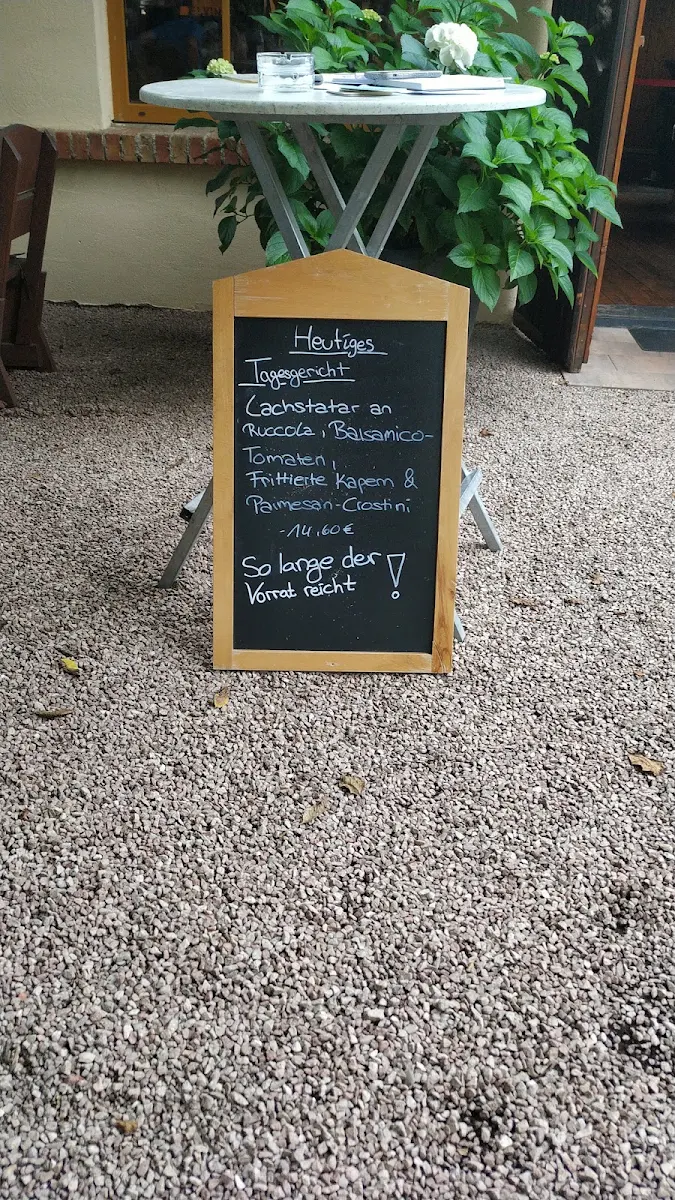 Heutiges
Tagesgericht
Lachstatar an
Ruccola, Balsamico-
Tomaten,
Frittierte Kapern &
Parmesan-Crostini
-14,60€
So lange der
Vorrat reicht !